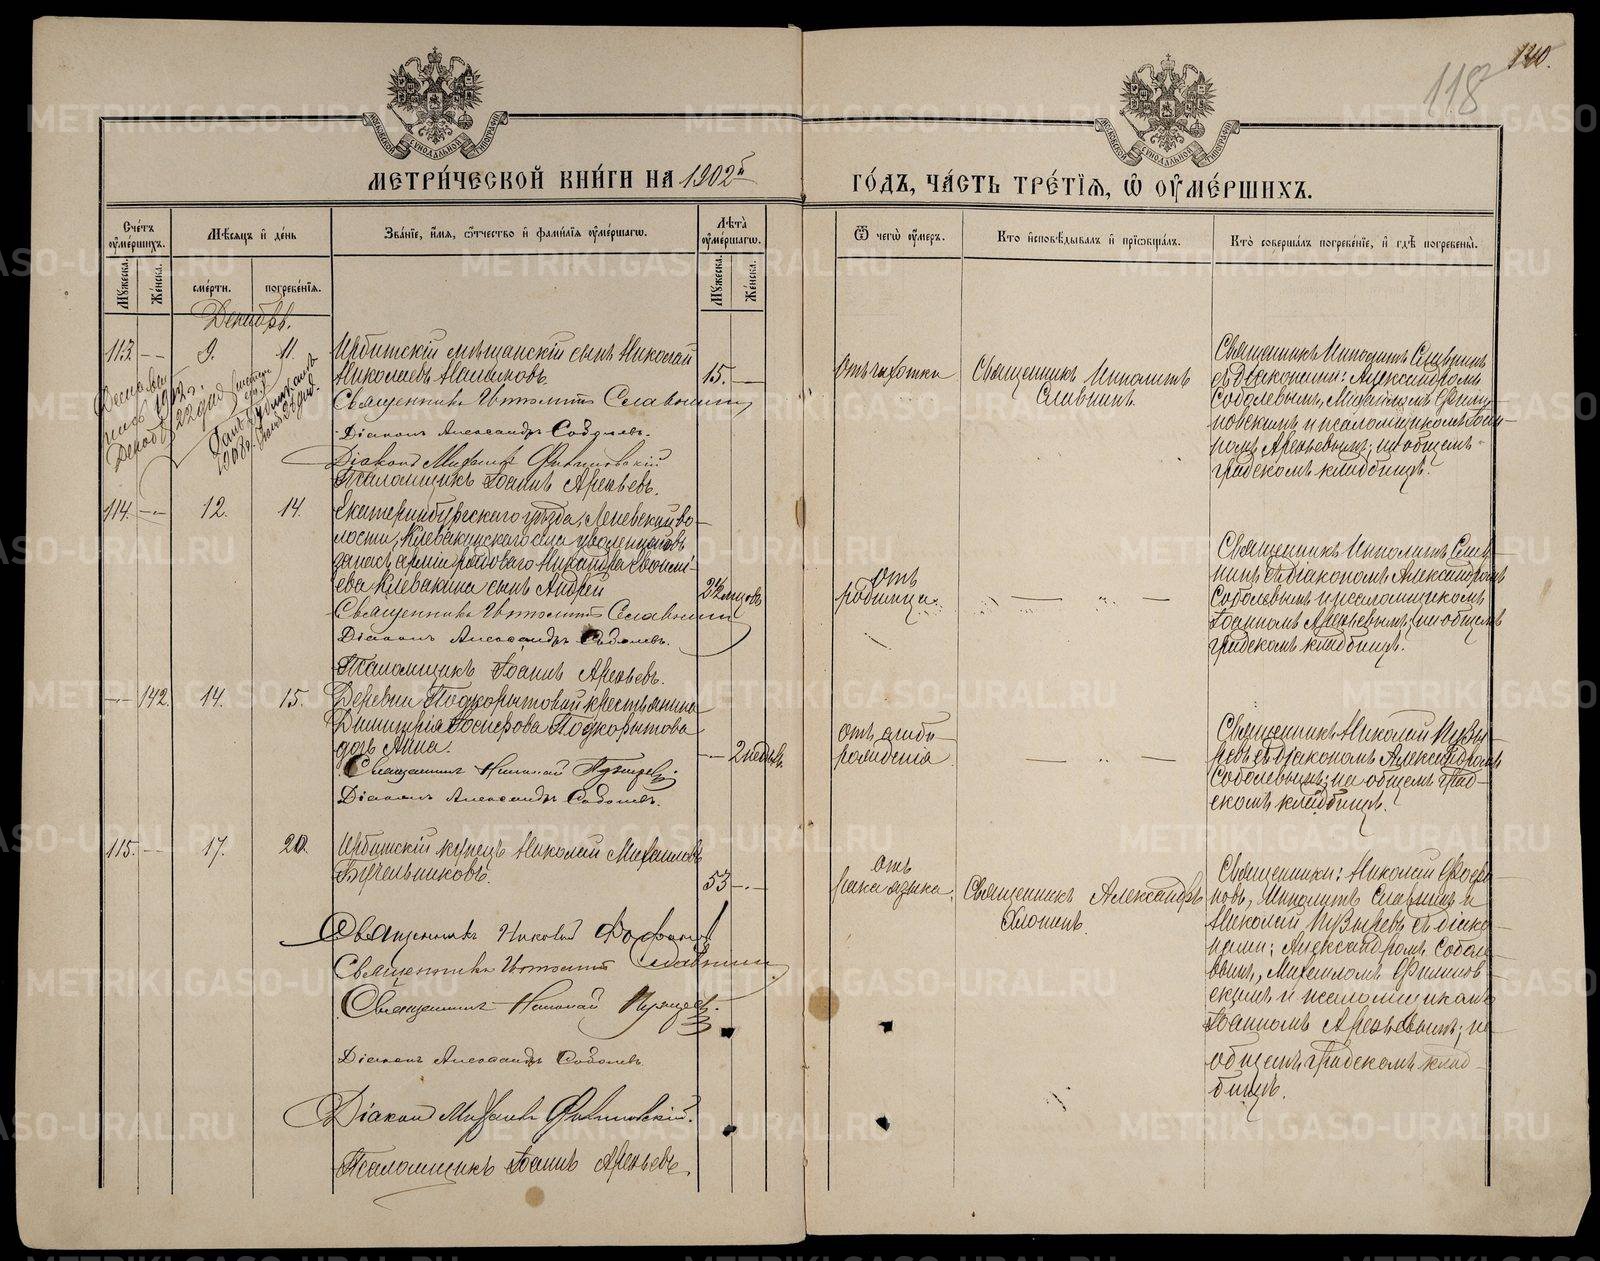 120.
118
МЕТРИ́ЧЕСКОЙ КНИ́ГИ НА 1902й
ГО́ДЪ, ЧА́СТЬ ТРЕ́ТІѦ, Ѡ ОУМЕ́РШИХЪ.
Сче́тъ оумершихъ.
Мужеска.
Же́нска.
Мѣсяцъ и де́нь
сме́рти.
погребе́нія.
Зва́ніе, и́мя, о́тчество и фами́лія оуме́ршагѡ.
Лѣта̀ оуме́ршагѡ.
Мужеска.
Же́нска.
Ѿ чегѡ̀ оу́меръ.
Кто̀ исповѣ́дывалъ и приѡбща́лъ.
Кто̀ соверша́лъ погребе́ніе, и гдѣ̀ погребены̀.
Декабрь.
113. — 9. 11.
Ирбитскій мѣщанскій сынъ Николай
Николаевъ
15. —
Священникъ Ипполитъ Славнинъ
Діаконъ Александръ Соболевъ.
Діаконъ Михаилъ Филиповскій
Псаломщикъ Іоаннъ Арсеньевъ.
Отъ чахотки
Священникъ Ипполитъ
Славнинъ.
Священникъ Ипполитъ Славнинъ
съ діаконами: Александромъ
Соболевымъ, Михаиломъ Фили-
повскимъ и псаломщикомъ Іоан-
номъ Арсеньевымъ; на общемъ
градскомъ кладбищѣ.
114. — 12. 14.
Екатеринбургскаго уѣзда, во-
лости, Клевакинскаго села уволеннаго въ
запасъ арміи рядоваго Никандра
Клевакина сынъ Андрей
2½ мѣсяцевъ
Священникъ Ипполитъ Славнинъ
Діаконъ Александръ Соболевъ.
Псаломщикъ Іоаннъ Арсеньевъ.
Отъ
родимца.
— „ —
Священникъ Ипполитъ Слав-
нинъ съ діакономъ Александромъ
Соболевымъ и псаломщикомъ
Іоанномъ Арсеньевымъ; на общемъ
градскомъ кладбищѣ.
— 142. 14. 15.
Деревни Подкорытовой крестьянина
Димитрія Подкорытова
дочь Анна.
— 2 недѣль.
Священникъ Николай Пузыревъ
Діаконъ Александръ Соболевъ.
отъ слабо-
рожденія
— „ —
Священникъ Николай Пузы-
ревъ съ діакономъ Александромъ
Соболевымъ; на общемъ град-
скомъ кладбищѣ.
115. — 17. 20.
Ирбитскій купецъ Николай Михаиловъ
Бучельниковъ.
53 —
Священникъ Николай
Священникъ Ипполитъ Славнинъ
Священникъ Николай Пузыревъ.
Діаконъ Александръ Соболевъ
Діаконъ Михаилъ Филиповскій.
Псаломщикъ Іоаннъ Арсеньевъ.
отъ
рака языка.
Священникъ Александръ
Священники: Николай
Ипполитъ Славнинъ и
Николай Пузыревъ съ діако-
нами: Александромъ Соболе-
вымъ, Михаиломъ Филипов-
скимъ и псаломщикомъ
Іоанномъ Арсеньевымъ; на
общемъ градскомъ клад-
бищѣ.
METRIKI.GASO-URAL.RU